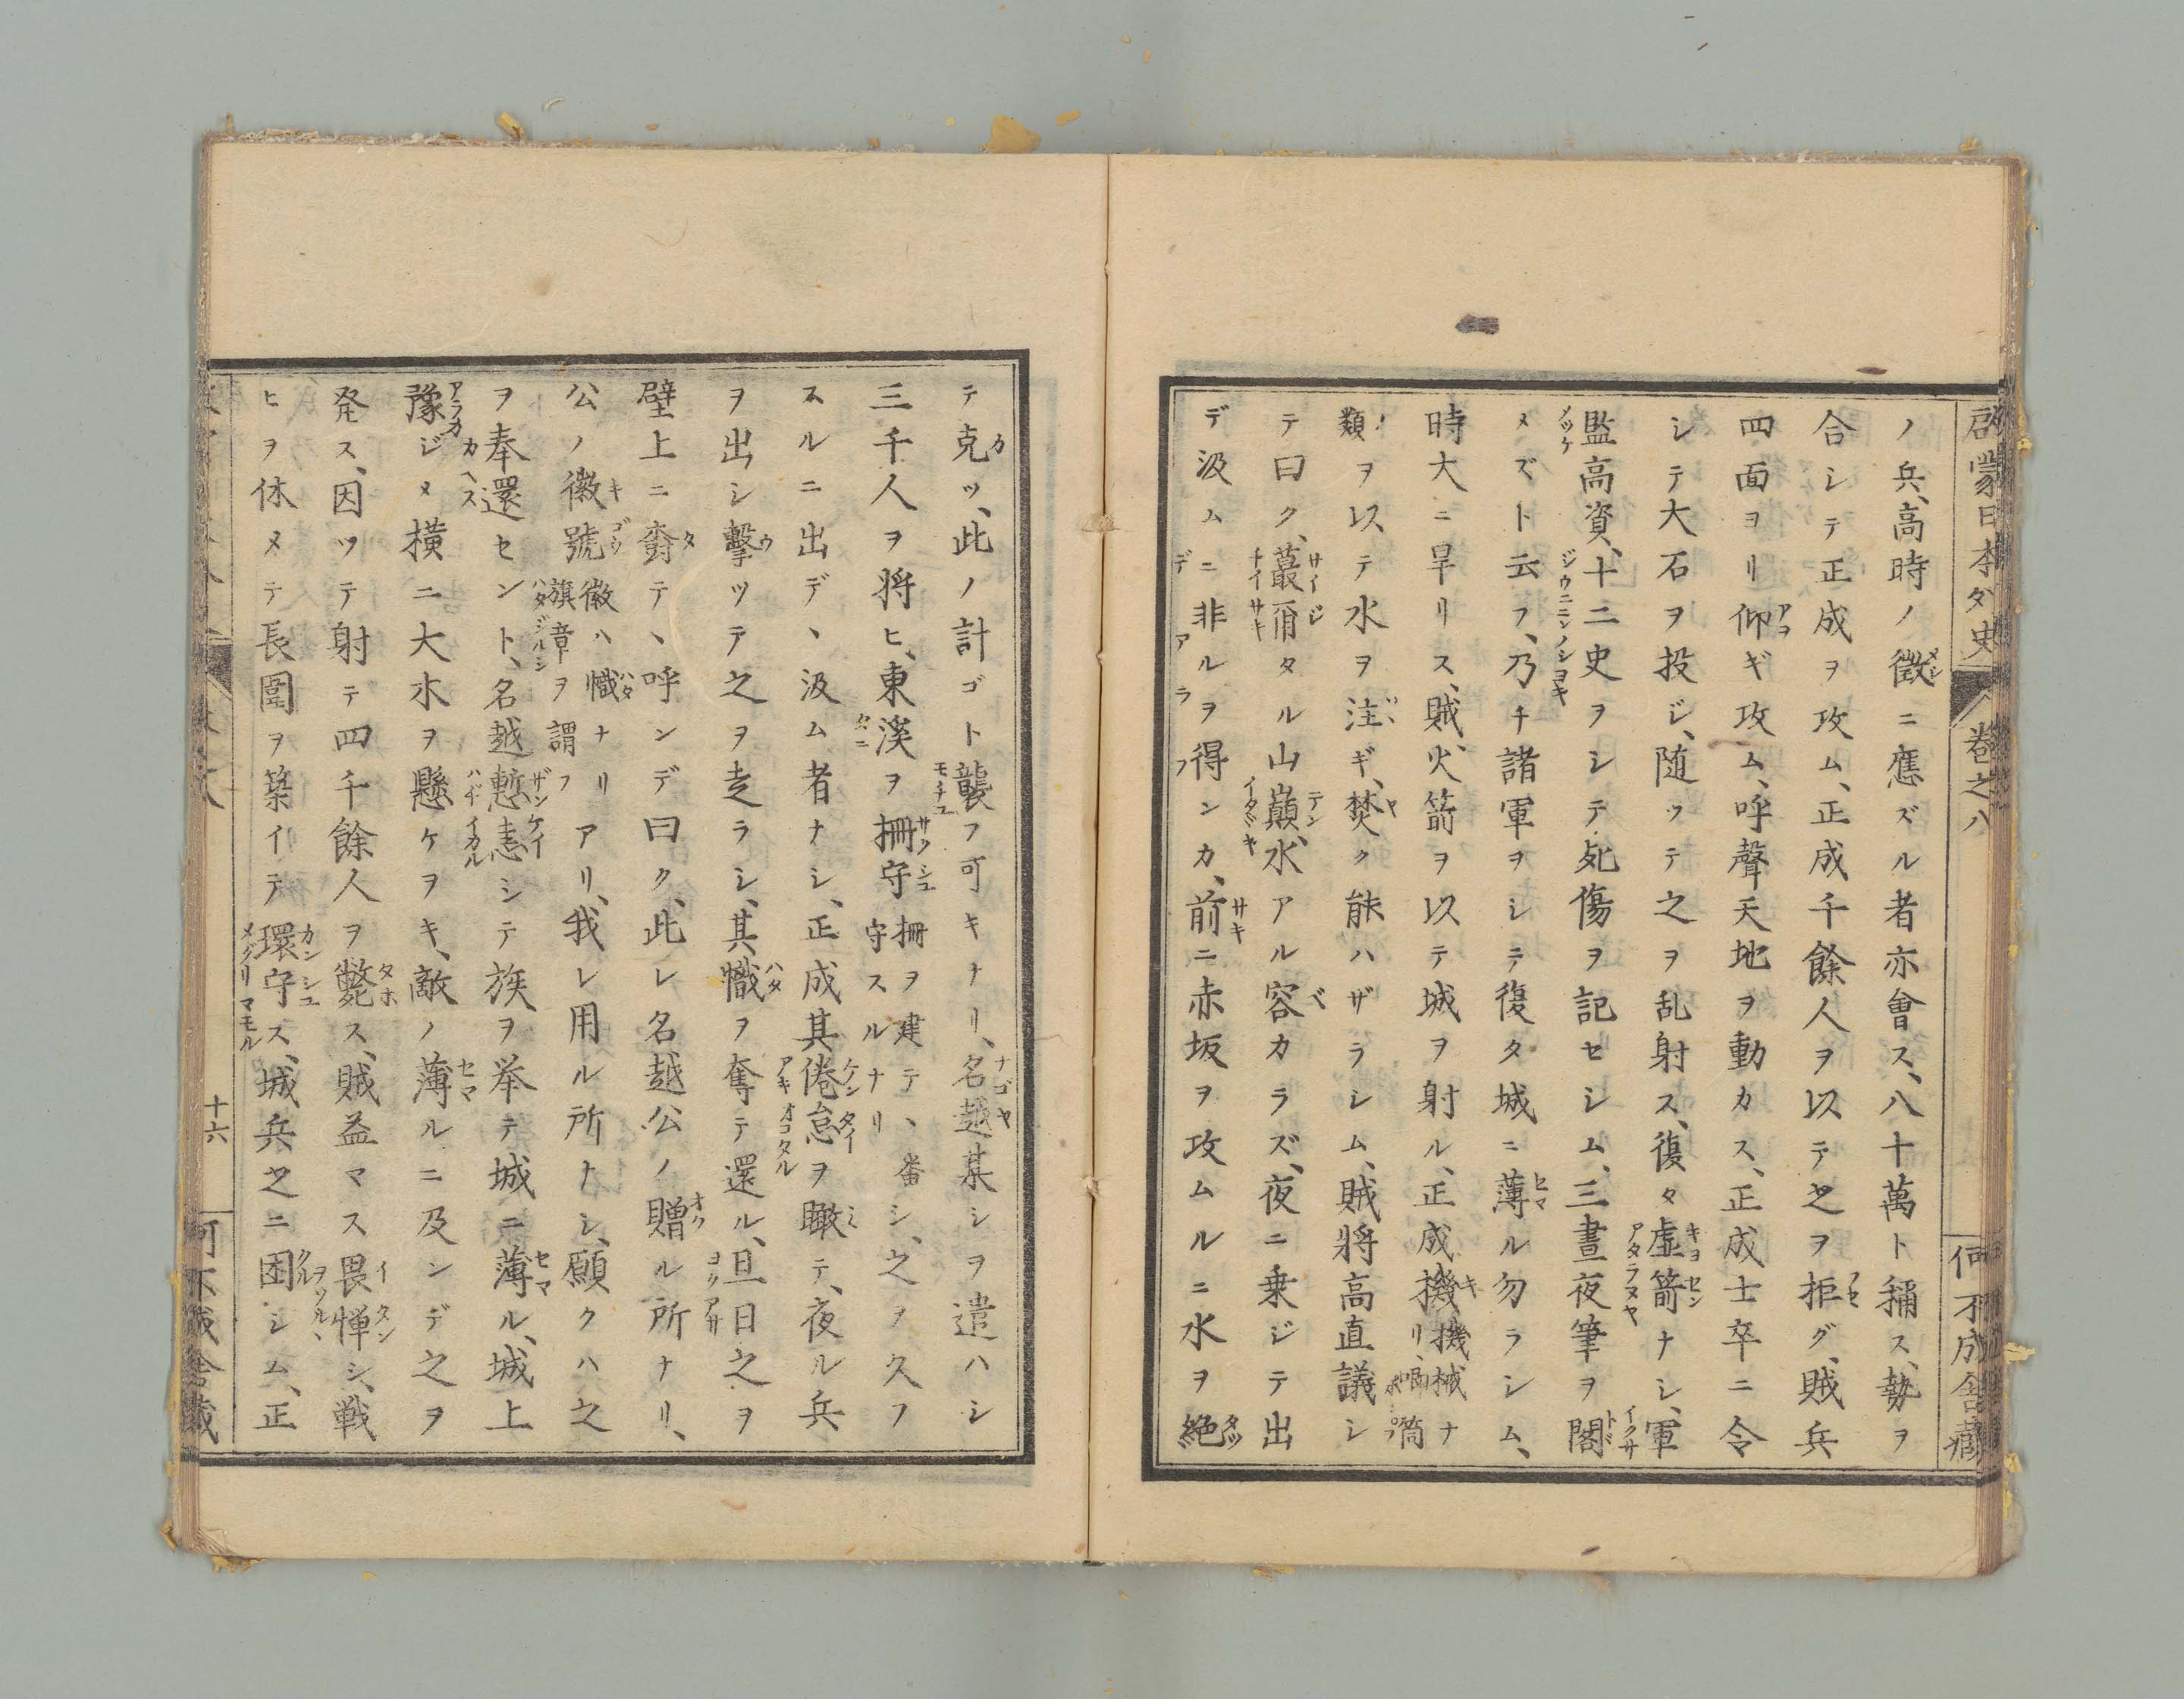 啓蒙日本外史 巻之八 何不成舎蔵
ノ兵、高時ノ徴ニ應ズル者亦會ス、八十萬ト稱ス、勢ヲ
合シテ正成ヲ攻ム、正成千餘人ヲ以テ之ヲ拒グ、賊兵
四面ヨリ仰ギ攻ム、呼聲天地ヲ動カス、正成士卒ニ令
シテ大石ヲ投ジ、随ツテ之ヲ乱射ス、復タ虚箭ナシ、軍
監高資、十二史ヲシテ死傷ヲ記セシム、三晝夜筆ヲ閣
メズト云フ、乃チ諸軍ヲシテ復タ城ニ薄ル勿ラシム、
時大ニ旱リス、賊、火箭ヲ以テ城ヲ射ル、正成機機械ナリ、喞筒
ノ類ヲ以テ水ヲ注ギ、焚ク能ハザラシム、賊將高直議シ
テ曰ク、蕞爾タル山巓、水アル容カラズ、夜ニ乗ジテ出
デ汲ムニ非ルヲ得ンカ、前ニ赤坂ヲ攻ムルニ水ヲ絶
テ克ツ、此ノ計ゴト襲フ可キナリ、名越某シヲ遣ハシ
三千人ヲ将ヒ、東溪ヲ柵守柵ヲ建テ、守スルナリシ、之ヲ久フ
スルニ出デ、汲ム者ナシ、正成其倦怠ヲ瞰テ、夜ル兵
ヲ出シ擊ツテ之ヲ走ラシ、其幟ヲ奪テ還ル、旦日之ヲ
壁上ニ樹テ、呼ンデ曰ク、此レ名越公ノ贈ル所ナリ、
公ノ徽號徽ハ幟ナリ旗章ヲ謂フアリ、我レ用ル所ナシ、願クハ之
ヲ奉還セント、名越慙恚シテ族ヲ挙テ城ニ薄ル、城上
豫ジメ横ニ大木ヲ懸ケヲキ、敵ノ薄ルニ及ンデ之ヲ
発ス、因ツテ射テ四千餘人ヲ斃ス、賊益マス畏憚シ、戦
ヒヲ休メテ長圍ヲ築イテ環守ス、城兵之ニ困シム、正
十六